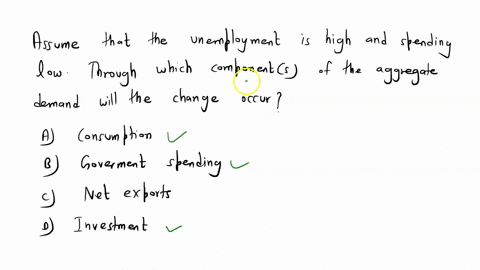 Assume that the unemployment is high and spending
low. Through which component(s) of the aggregate
demand will the change occur?
A) Consumption ✓
B) Goverment spending ✓
C) Net exports
D) Investment ✓